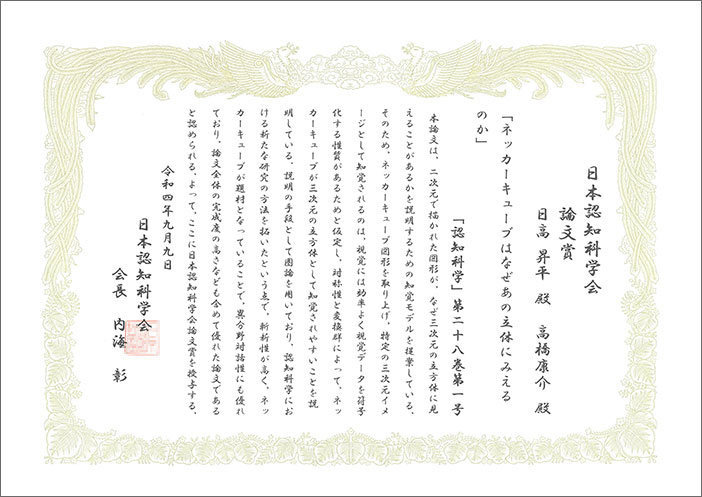 日本認知科学会
論文賞
日髙昇平 殿 高橋康介 殿
「ネッカーキューブはなぜあの立体にみえる
のか」
「認知科学」第二十八巻第一号
本論文は、二次元で描かれた図形が、なぜ三次元の立方体に見
えることがあるかを説明するための知覚モデルを提案している。
そのため、ネッカーキューブ図形を取り上げ、特定の三次元イメ
ージとして知覚されるのは、視覚には効率よく視覚データを符号
化する性質があるためと仮定し、対称性と変換群によって、ネッ
カーキューブが三次元の立方体として知覚されやすいことを説
明している。説明の手段として圏論を用いており、認知科学にお
ける新たな研究の方法を拓いたという点で、斬新性が高く、ネッ
カーキューブが題材となっていることで、異分野対話性にも優れ
ており、論文全体の完成度の高さなども含めて優れた論文である
と認められる。よって、ここに日本認知科学会論文賞を授与する。
令和四年九月九日
日本認知科学会
会長 内海 彰